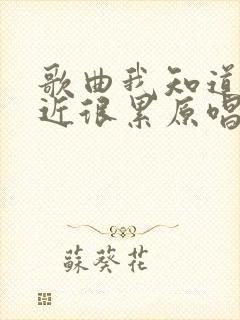 歌曲我知道
近很累原唱
蘇葵花